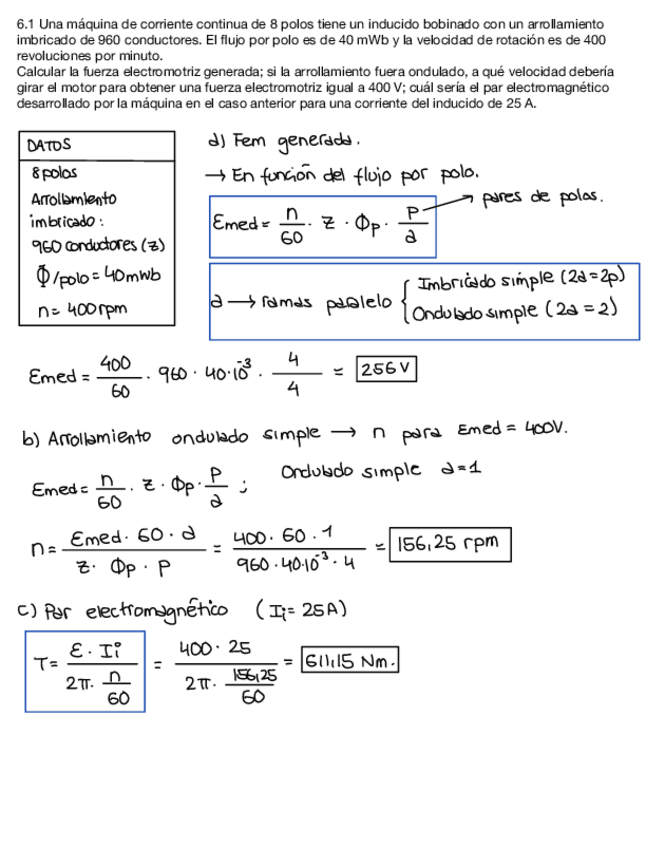 6.1 Una máquina de corriente continua de 8 polos tiene un inducido bobinado con un arrollamiento
imbricado de 960 conductores. El flujo por polo es de 40 mWb y la velocidad de rotación es de 400
revoluciones por minuto.
Calcular la fuerza electromotriz generada; si la arrollamiento fuera ondulado, a qué velocidad debería
girar el motor para obtener una fuerza electromotriz igual a 400 V; cuál sería el par electromagnético
desarrollado por la máquina en el caso anterior para una corriente del inducido de 25 A.
DATOS
8 polos
Arrollamiento
imbricado:
960 conductores (z)
Φ/polo = 40mwb
n = 400rpm
a) Fem generada.
→ En función del flujo por polo.
Emed = n/60 · z · Φp · P/a → pares de polos.
a → ramas paralelo { Imbricado simple (2a = 2p)
Ondulado simple (2a = 2)
Emed = 400/60 · 960 · 40·10⁻³ · 4/4 = 256 V
b) Arrollamiento ondulado simple → n para Emed = 400V.
Emed = n/60 · z · Φp · P/a ; Ondulado simple a=1
n = Emed · 60 · a / z · Φp · P = 400 · 60 · 1 / 960 · 40·10⁻³ · 4 = 156,25 rpm
c) Par electromagnético (Ii = 25A)
T = ε · Ii / 2π · n/60 = 400 · 25 / 2π · 156,25/60 = 611,15 Nm.